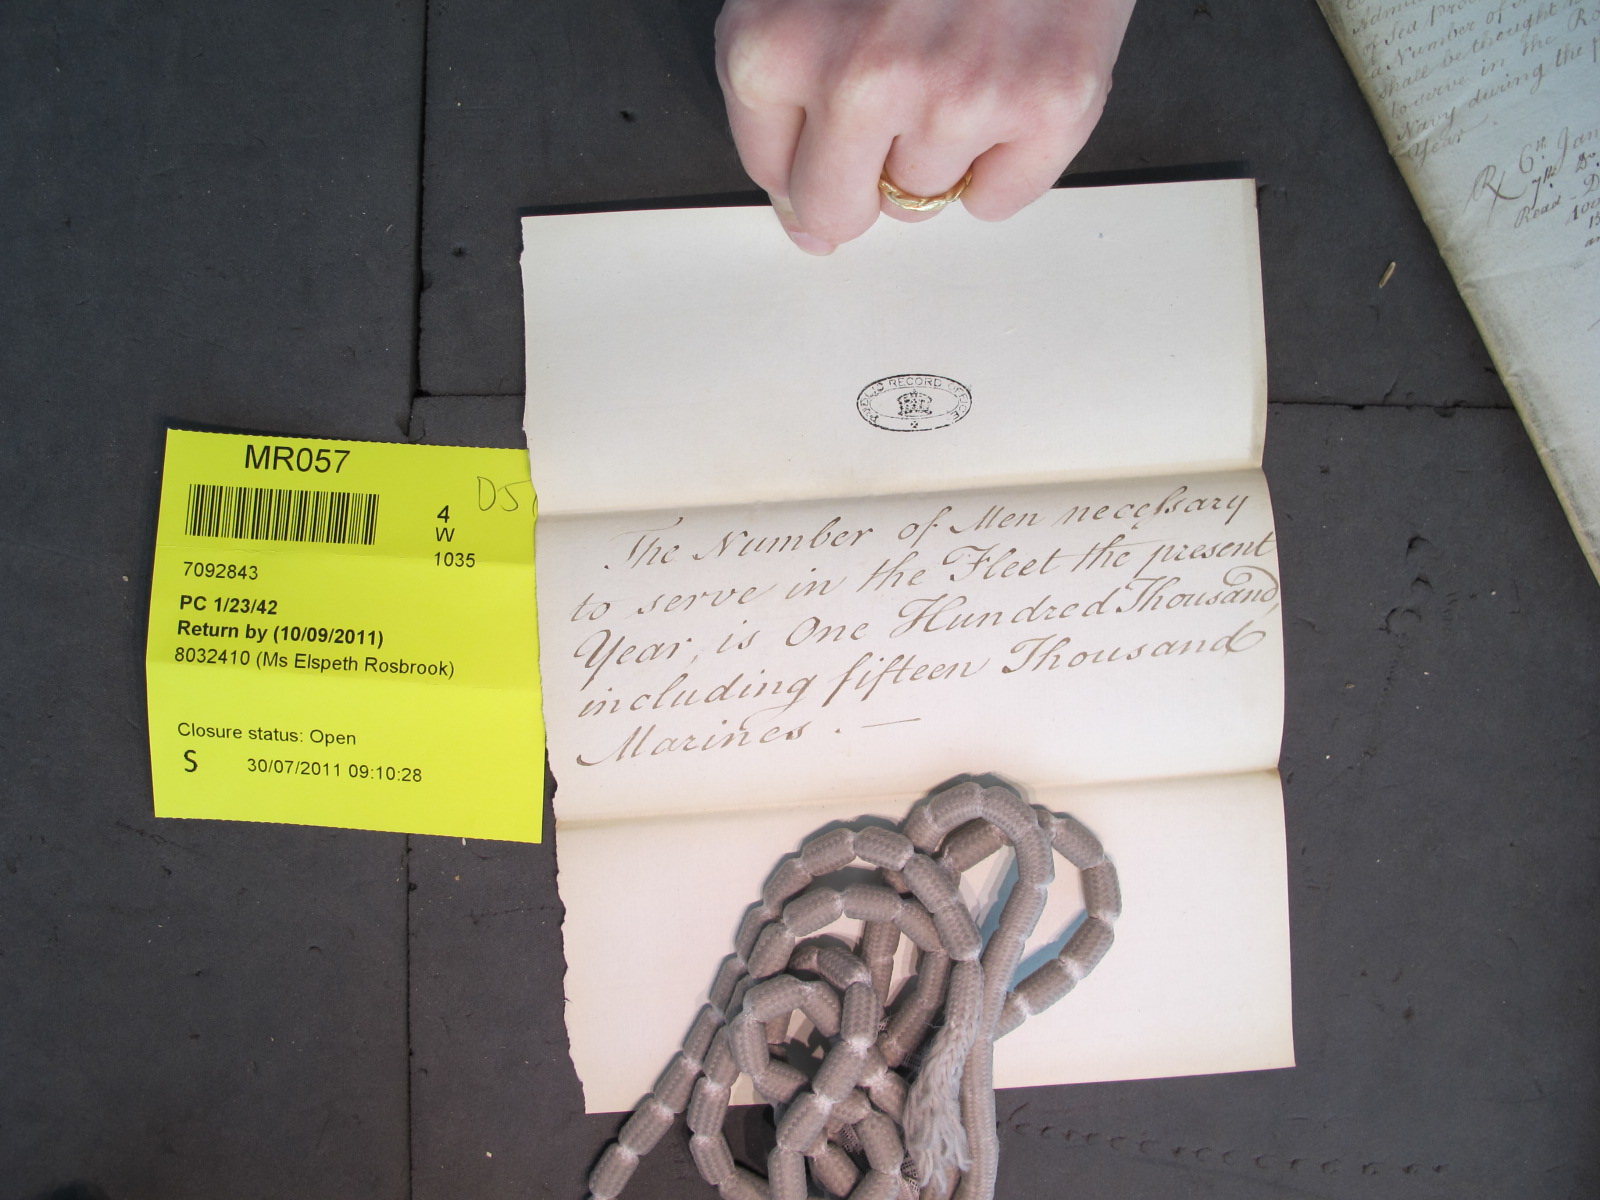 MR057
4
W
1035
7092843
PC 1/23/42
Return by (10/09/2011)
8032410 (Ms Elspeth Rosbrook)
Closure status: Open
S 30/07/2011 09:10:28
PUBLIC RECORD OFFICE
The Number of Men necessary
to serve in the Fleet the present
Year, is One Hundred Thousand,
including fifteen Thousand
Marines. —
of Sea
a Number of
shall be thought
to serve in the
Navy during the
Year
6th Jan
7th Do.
Read